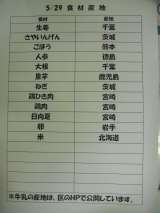 5/29 食材産地
食材 産地
生姜 千葉
さやいんげん 茨城
ごぼう 熊本
人参 徳島
大根 千葉
里芋 鹿児島
ねぎ 茨城
鶏ひき肉 宮崎
鶏肉 宮崎
日向夏 宮崎
卵 岩手
米 北海道
※牛乳の産地は、区のHPで公開しています。